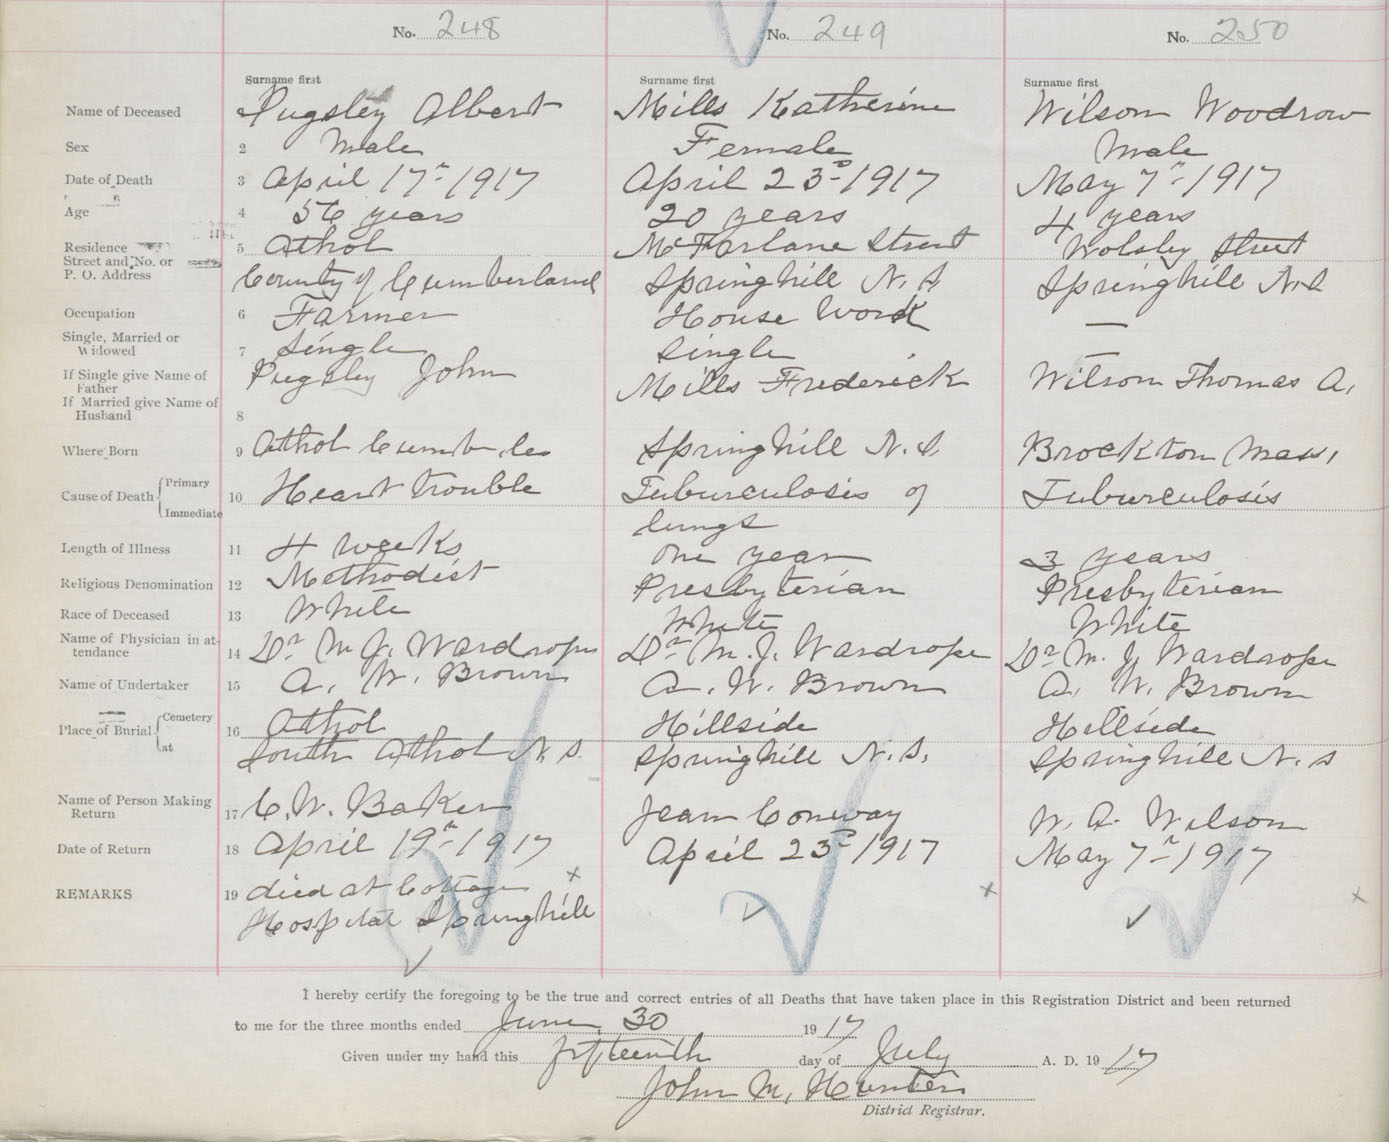 No. 248 No. 249 No. 250
Surname first Surname first Surname first
Name of Deceased Pugsley Albert Mills Katherine Wilson Woodrow
Sex 2 Male Female Male
Date of Death 3 April 17th 1917 April 23rd 1917 May 7th 1917
Age 4 56 years 20 years 4 years
Residence 5 Athol McFarlane Street Wolsley Street
Street and No. or
P. O. Address County of Cumberland Springhill N. S. Springhill N.S
Occupation 6 Farmer House Work —
Single, Married or
Widowed 7 Single Single —
If Single give Name of
Father Pugsley John Mills Frederick Wilson Thomas A.
If Married give Name of
Husband 8
Where Born 9 Athol Cumb. Co Springhill N. S. Brockton Mass.
Cause of Death Primary 10 Heart trouble Tuburculosis of Tuburculosis
Immediate lungs
Length of Illness 11 4 weeks one year 3 years
Religious Denomination 12 Methodist Presbyterian Presbyterian
Race of Deceased 13 White White White
Name of Physician in at-
tendance 14 Dr M. J. Wardrope Dr M. J. Wardrope Dr M. J. Wardrope
Name of Undertaker 15 A. W. Brown A. W. Brown A. W. Brown
Place of Burial Cemetery 16 Athol Hillside Hillside
at South Athol N. S. Springhill N. S. Springhill N. S
Name of Person Making
Return 17 C. W. Baker Jean Conway W. A. Wilson
Date of Return 18 April 19th 1917 April 23rd 1917 May 7th 1917
REMARKS 19 died at Cottage
Hospital Springhill
I hereby certify the foregoing to be the true and correct entries of all Deaths that have taken place in this Registration District and been returned
to me for the three months ended June 30 1917
Given under my hand this fifteenth day of July A. D. 1917
John M. Hunter
District Registrar.